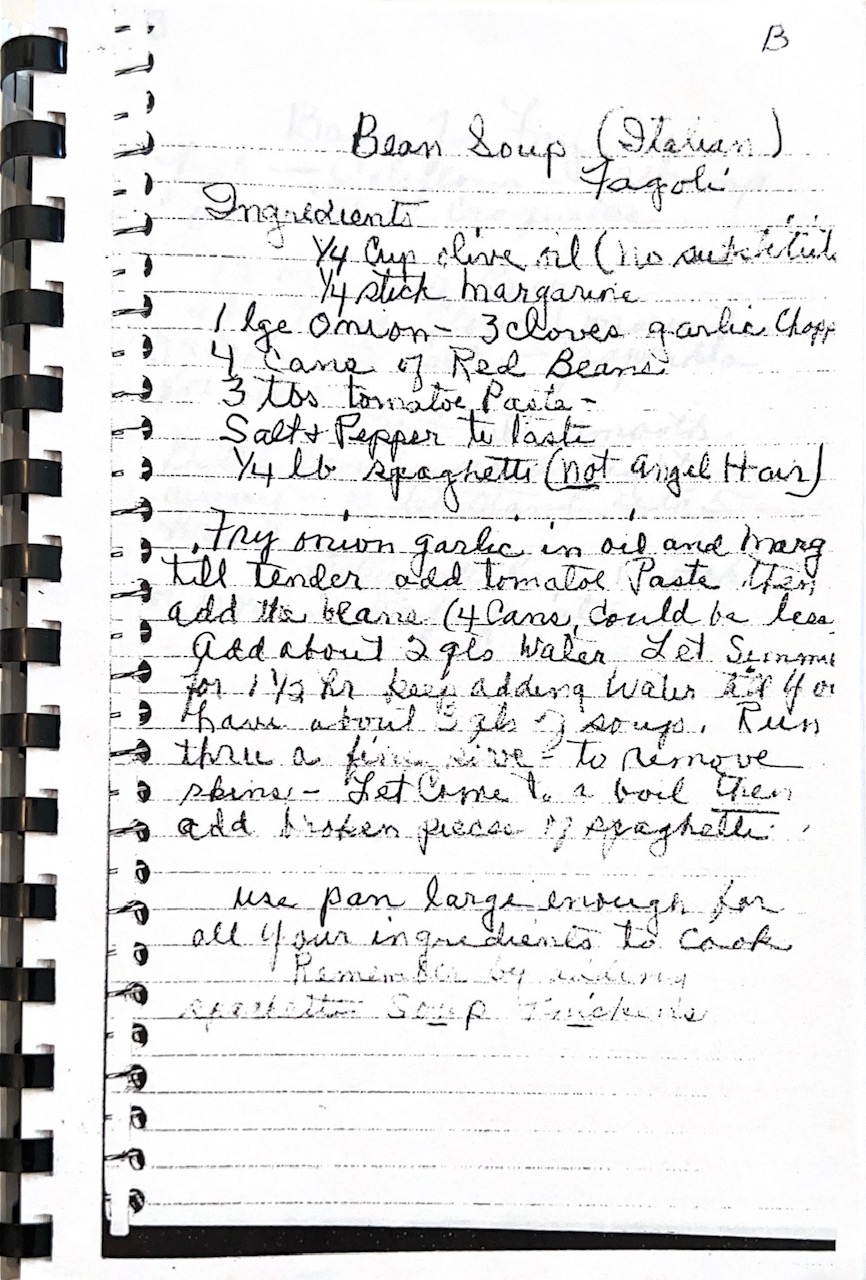 B
Bean Soup (Italian)
Fagoli
Ingredients
1/4 Cup olive oil (no substitut
1/4 stick margarine
1 lge Onion - 3 cloves garlic Chopp
4 Cans of Red Beans
3 tbs tomatoe Paste -
Salt & Pepper to taste
1/4 lb spaghetti (not Angel Hair)
Fry onion garlic in oil and Marg
till tender add tomatoe Paste then
add the beans (4 Cans, could be less
Add about 2 qts Water Let Simme
for 1 1/2 hr keep adding Water till you
have about 3 qts of soup. Run
thru a fine sive - to remove
skins - Let Come to a boil then
add broken pieces of spaghetti.
use pan large enough for
all your ingredients to Cook
Remember by adding
spaghetti Soup Thickens